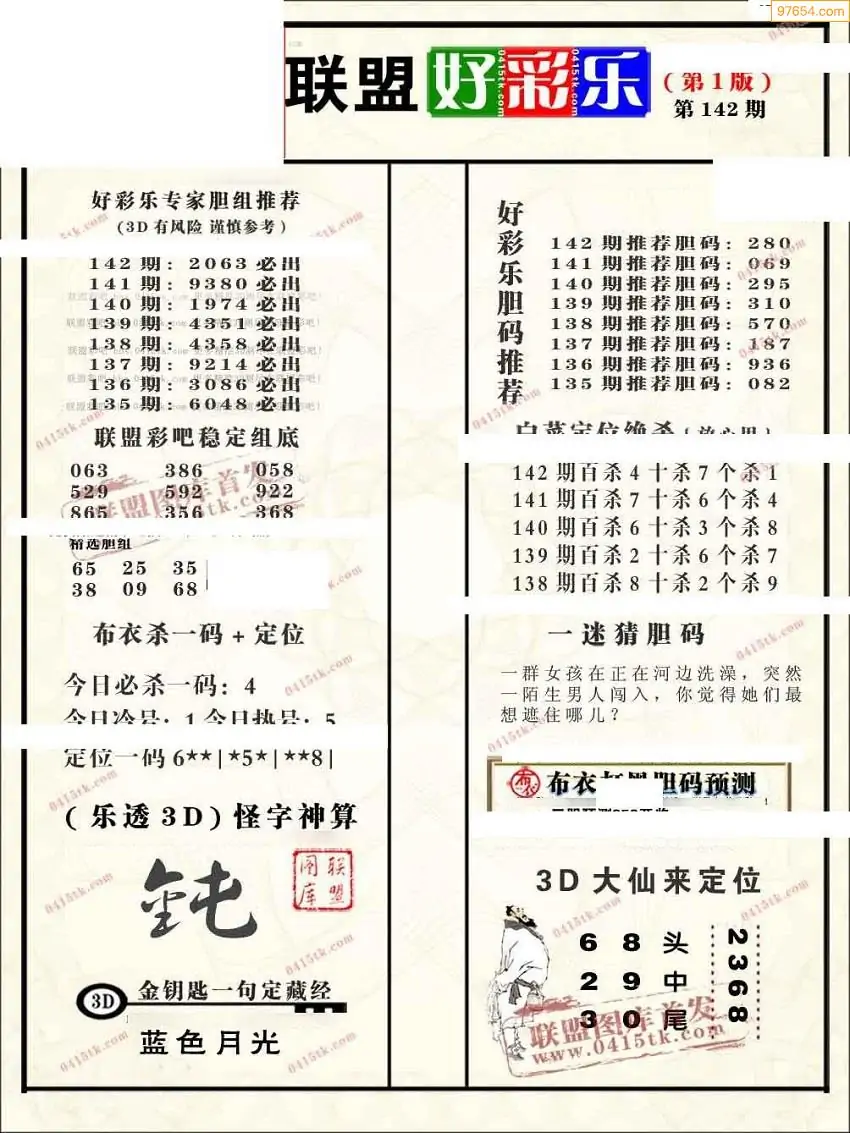 97654.com
联盟 好彩乐
(第1版)
第 142 期
好彩乐专家胆组推荐
(3D 有风险 谨慎参考)
142 期: 2063 必出
141 期: 9380 必出
140 期: 1974 必出
139 期: 4351 必出
138 期: 4358 必出
137 期: 9214 必出
136 期: 3086 必出
135 期: 6048 必出
联盟彩吧稳定组底
063 386 058
529 592 922
865 356 368
精选胆组
65 25 35
38 09 68
布衣杀一码 + 定位
今日必杀一码: 4
今日冷号: 1 今日热号: 5
定位一码 6**|*5*|**8|
(乐透 3D) 怪字神算
钝
联盟图库
3D 金钥匙一句定藏经
蓝色月光
好彩乐胆码推荐
142 期推荐胆码: 280
141 期推荐胆码: 069
140 期推荐胆码: 295
139 期推荐胆码: 310
138 期推荐胆码: 570
137 期推荐胆码: 187
136 期推荐胆码: 936
135 期推荐胆码: 082
142 期百杀 4 十杀 7 个杀 1
141 期百杀 7 十杀 6 个杀 4
140 期百杀 6 十杀 3 个杀 8
139 期百杀 2 十杀 6 个杀 7
138 期百杀 8 十杀 2 个杀 9
一迷猜胆码
一群女孩在正在河边洗澡，突然
一陌生男人闯入，你觉得她们最
想遮住哪儿？
布衣 胆码预测
3D 大仙来定位
6 8 头
2 9 中
3 0 尾
2368
联盟图库首发
www.0415tk.com